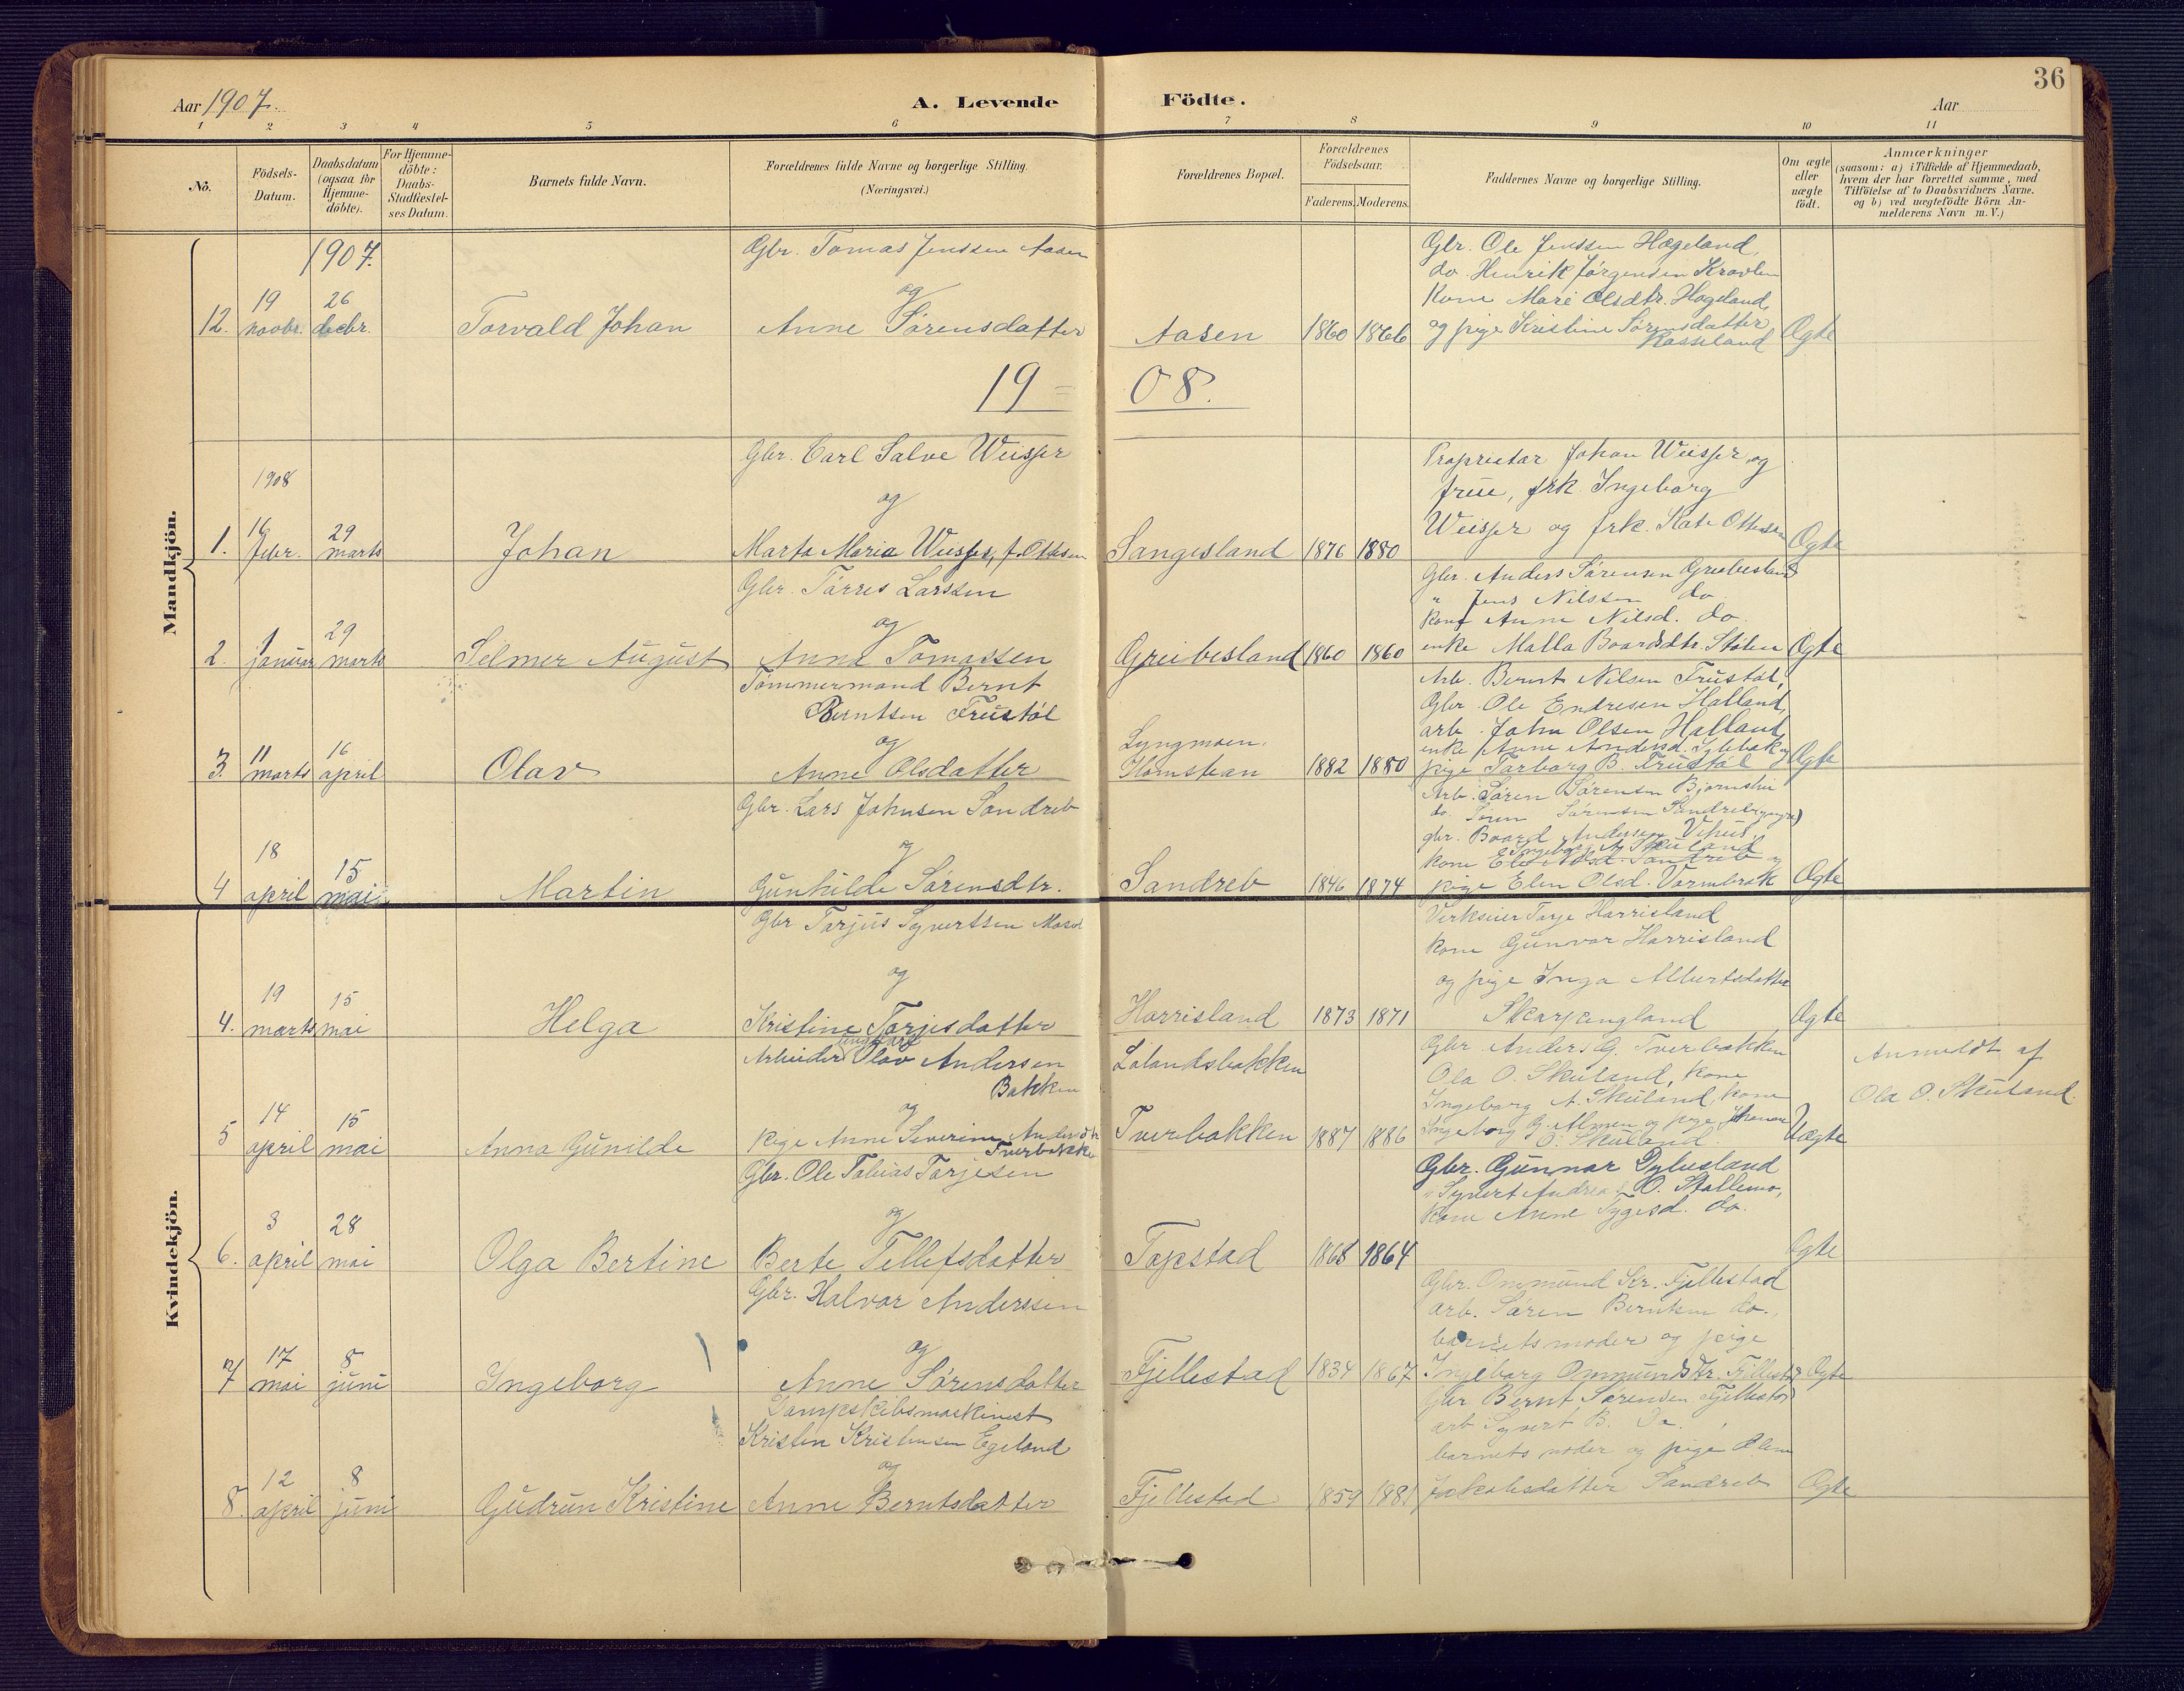 36
Aar 1907.
A. Levende Födte.
Aar
1 2 3 4 5 6 7 8 9 10 11
No.
Födsels-Datum.
Daabsdatum (ogsaa for Hjemme-döbte).
For Hjemme-döbte: Daabs-Stadfæstel-ses Datum.
Barnets fulde Navn.
Forældrenes fulde Navne og borgerlige Stilling.
(Næringsvei.)
Forældrenes Bopæl.
Forældrenes Födselsaar.
Faderens. Moderens.
Faddernes Navne og borgerlige Stilling.
Om ægte eller uægte födt.
Anmærkninger
(saasom: a) i Tilfælde af Hjemmedaab,
hvem der har forrettet samme, med
Tilföielse af to Daabsvidners Navne.
og b) ved uægtefödte Börn An-
melderens Navn m.V.)
Mandkjön.
1907.
12. 19 novbr. 26 decbr. Torvald Johan
Gbr. Tomas Jenssen Aasen
og
Anne Sørensdatter
Aasen 1860 1866
Gbr. Ole Jenssen Hægeland,
do. Henrik Jørgensen
Kone Mari Olsdtr. Hægeland,
og pige Kristine Sørensdatter
Kasseland
Ægte
19 = 08.
1908
1. 16 febr. 29 marts Johan
Gbr. Carl Salve Weisser
og
Marta Maria Weisser, f. Ottesen
Sangesland 1876 1880
Proprietær Johan Weisser og
frue, frk Ingeborg
Weisser og frk. Kate Ottesen
Ægte
2. 1 januar 29 marts Selmer August
Gbr. Tørres Larssen
og
Anna Tomassen
Greibesland 1860 1860
Gbr. Anders Sørensen Greibesland
" Jens Nilssen do
Kone Anne Nilsd. do.
enke Malla Boardsdtr. Stolen
Ægte
3. 11 marts 16 april Olav
Tømmermand Bernt
Berntsen Trustøl
og
Anne Olsdatter
Lyngmoen,
1882 1880
Arb. Bernt Nilsen Trustøl,
Gbr. Ole Endresen Halland,
arb. John Olsen Halland,
enke Anne Andersd.
pige Tarborg B. Trustøl
Ægte
4 18 april 15 mai Martin
Gbr. Lars Johnsen Sandreb
og
Gunhilde Sørensdtr.
Sandreb 1846 1874
Arb. Søren Sørensen
do. Søren Sørensen Sandreb (yngre)
gbr. Board Andersen Vehus,
Ingeborg A. Skuland
kone
pige Elen Olsd.
Ægte
Kvindekjön.
4. 19 marts 15 mai Helga
Gbr Tarjus Syvertsen
og
Kristine Tarjesdatter
Harrisland 1873 1871
Verkseier Tarje Harrisland
kone Gunvor Harrisland
og pige Inga Albertsdatter
Skarpengland
Ægte
5 14 april 15 mai Anna Gunilde
ungkarl
Arbeider Olav Andersen
Bakken
og
pige Anne Severine Andersdtr
Tverbakken
Lølandsbakken
Tverbakken 1887 1886
Gbr Anders G. Tverbakken
Ola O. Skuland, kone
Ingeborg A. Skuland, kone
Ingeborg G. og pige
O. Skuland
Uægte
Anmeldt af
Ola O. Skuland.
6. 3 april 28 mai Olga Bertine
Gbr. Ole Tobias Tarjesen
og
Berte Tellefsdatter
Tapstad 1868 1864
Gbr. Gunnar
Syvert Andreas O. Stallemo,
Kone Anne Tygesd. do.
Ægte
7 17 mai 8 juni Ingeborg
Gbr. Halvor Anderssen
og
Anne Sørensdatter
Fjellestad 1834 1867
Gbr. Ommund Kr. Fjellestad
arb. Søren Berntsen do.,
barnets moder og pige
Ingeborg Ommundsdtr. Fjellestad
Ægte
8. 12 april 8 juni Gudrun Kristine
Dampskibsmaskinist
Kristen Kristensen Egeland
og
Anne Berntsdatter
Fjellestad 1859 1881
Gbr Bernt Sørensen Fjellestad
arb. Syvert B. Do
barnets moder og pige Elen
Jakobsdatter Sandreb
Ægte